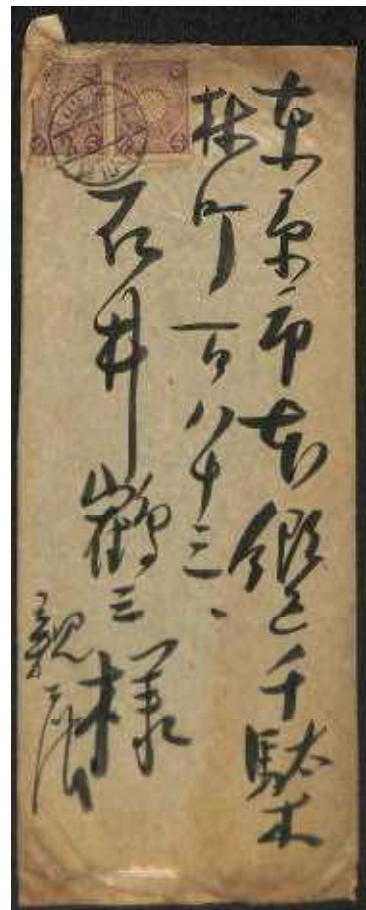 東京市本郷区千駄木
林町一百八十三、
石井鶴三様
親展